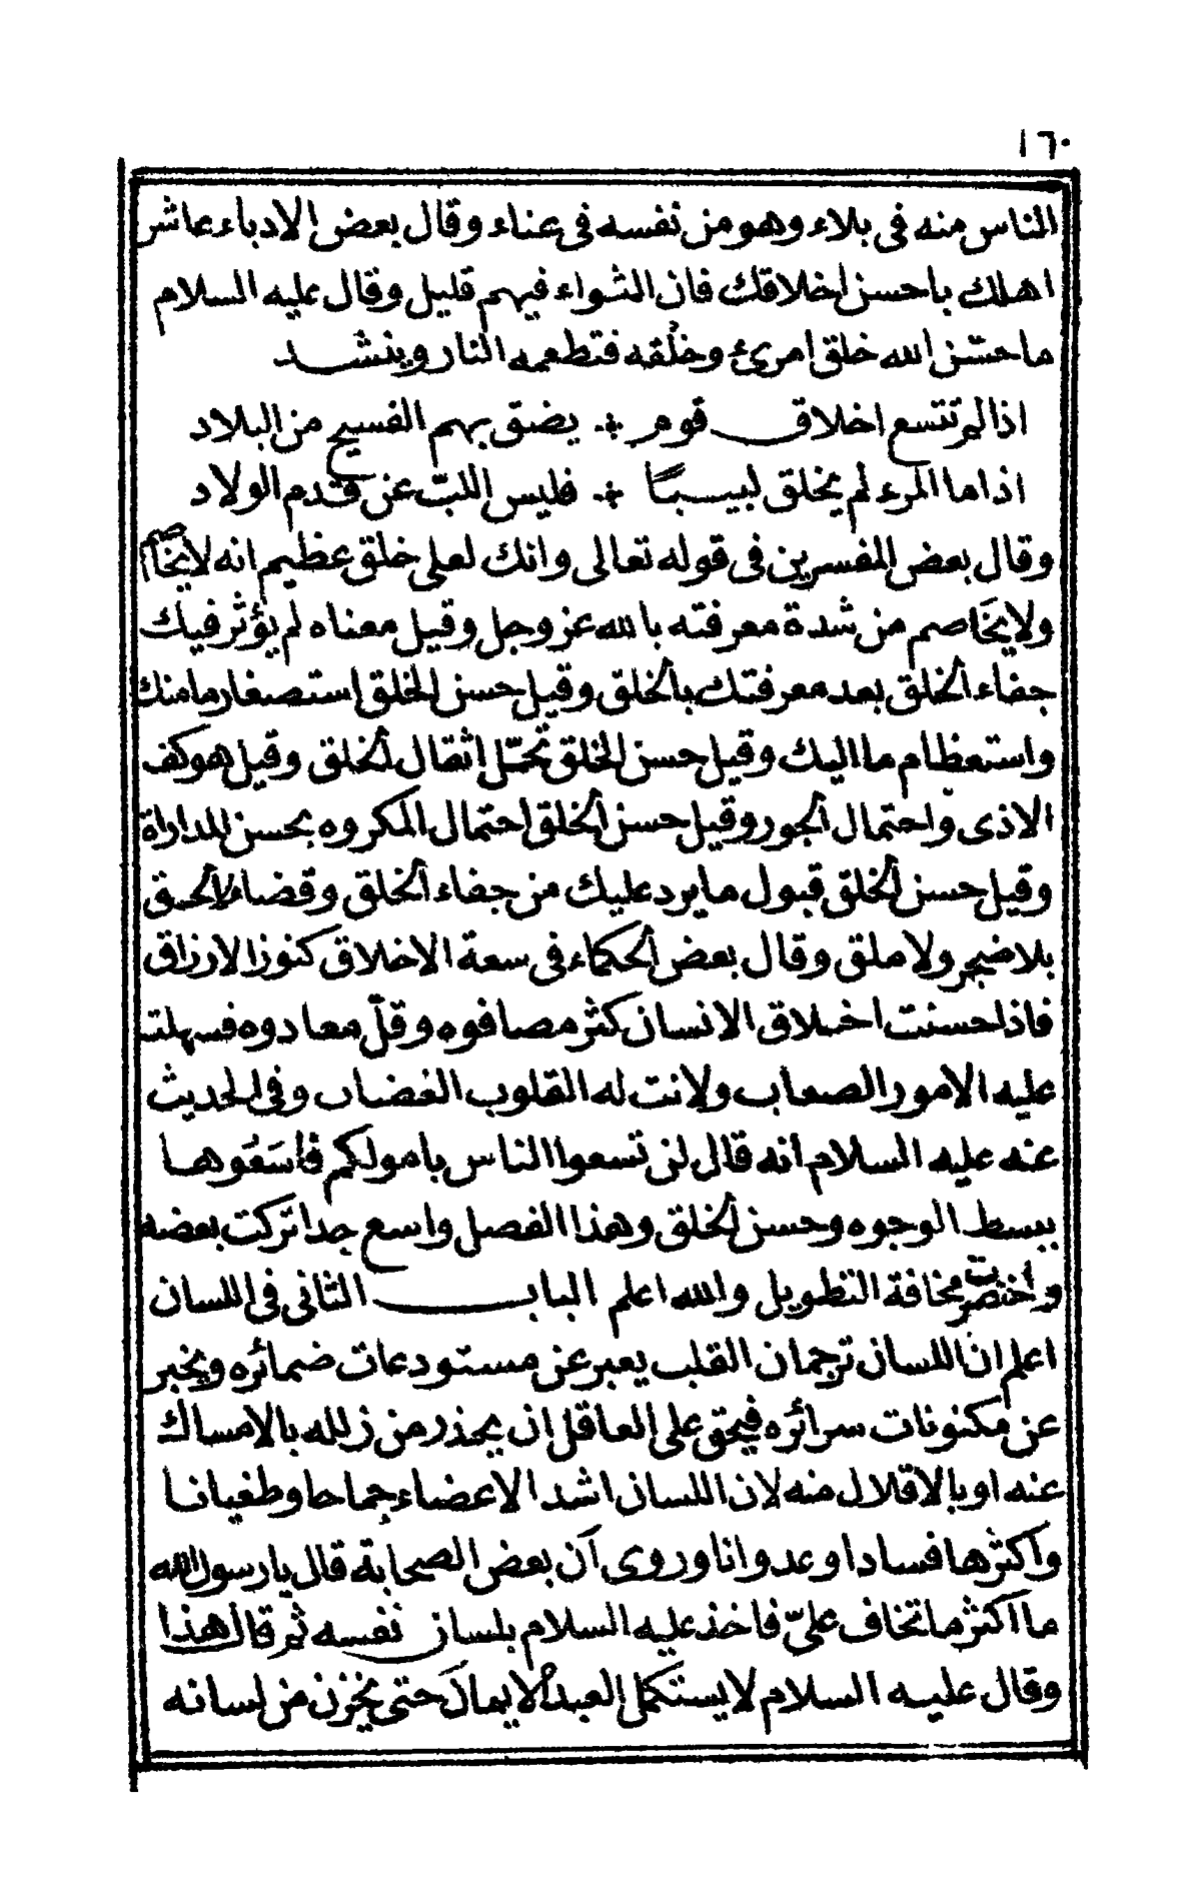 ١٦٠
الناس منه فى بلاء وهو من نفسه فى عناء وقال بعض الادباء عاشر
اهلك باحسن اخلاقك فان الثواء فيهم قليل وقال عليه السلام
ما حسّن الله خلق امرئ وخلُقه فتطعمه النار وينشد
اذا لم تتسع اخلاق قوم ∴ يضق بهم الفسيح من البلاد
اذا ما المرء لم يخلق لبيبًا ∴ فليس اللبّ عن قدم الولاد
وقال بعض المفسرين فى قوله تعالى وانك لعلى خلق عظيم انه لا يخاصم
ولا يخَاصم من شدة معرفته بالله عز وجل وقيل معناه لم يؤثر فيك
جفاء الخلق بعد معرفتك بالخلق وقيل حسن الخلق استصغار ما منك
واستعظام ما اليك وقيل حسن الخلق تحمّل اثقال الخلق وقيل هو كف
الاذى واحتمال الجور وقيل حسن الخلق احتمال المكروه بحسن المداراة
وقيل حسن الخلق قبول ما يرد عليك من جفاء الخلق وقضاء الحق
بلا ضجر ولا ملق وقال بعض الحكماء فى سعة الاخلاق كنوز الارزاق
فاذا حسنت اخلاق الانسان كثر مصافوه وقلّ معادوه فسهلت
عليه الامور الصعاب ولانت له القلوب الغضاب وفى الحديث
عنه عليه السلام انه قال لن تسعوا الناس باموالكم فاسَعُوهـا
ببسط الوجوه وحسن الخلق وهذا الفصل واسع جدا تركت بعضه
واختصرت مخافة التطويل والله اعلم البـاب الثانى فى اللسان
اعلم ان اللسان ترجمان القلب يعبر عن مستودعات ضمائره ويخبر
عن مكنونات سرائره فيحق على العاقل ان يحذر من زلله بالامساك
عنه او بالاقلال منه لان اللسان اشد الاعضاء جماحا وطغيانا
واكثرها فسادا وعدوانا وروى ان بعض الصحابة قال يا رسول الله
ما اكثر ما تخاف علىّ فاخذ عليه السلام بلسان نفسه ثم قال هذا
وقال عليه السلام لا يستكمل العبد الايمان حتى يخزن من لسانه